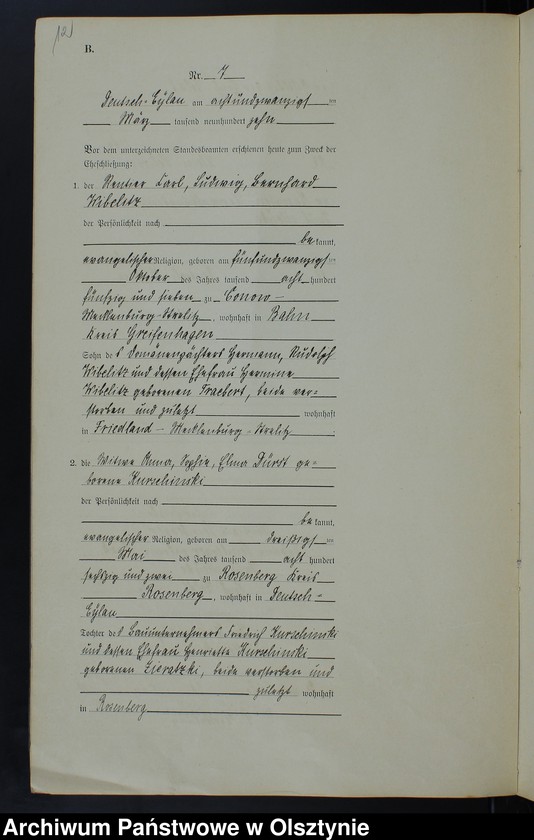 12
B.
Nr. 7
Deutsch-Eylau am achtundzwanzigsten
März tausend neunhundert zehn
Vor dem unterzeichneten Standesbeamten erschienen heute zum Zweck der
Eheschließung:
1. der Rentier Carl, Ludwig, Bernhard
Wibelitz
der Persönlichkeit nach
be kannt,
evangelischer Religion, geboren am fünfundzwanzigsten
Oktober des Jahres tausend acht hundert
fünfzig und sieben zu Conow-
Mecklenburg-Strelitz, wohnhaft in Bahn
Kreis Greifenhagen
Sohn des Domänenpächters Hermann, Rudolph
Wibelitz und dessen Ehefrau Hermine
Wibelitz geborenen Traebert, beide ver-
storben und zuletzt wohnhaft
in Friedland-Mecklenburg-Strelitz
2. die Witwe Anna, Sophie, Elma Fürst ge-
borene Kurschinski
der Persönlichkeit nach
be kannt,
evangelischer Religion, geboren am dreißigsten
Mai des Jahres tausend acht hundert
sechzig und zwei zu Rosenberg Kreis
Rosenberg, wohnhaft in Deutsch-
Eylau
Tochter des Bauunternehmers Friedrich Kurschinski
und dessen Ehefrau Henriette Kurschinski
geborenen Zieratzki, beide verstorben und
zuletzt wohnhaft
in Rosenberg
Archiwum Państwowe w Olsztynie